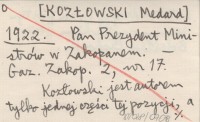 [KOZŁOWSKI Medard]
1922. Pan Prezydent Mini-
strów w Zakopanem. —
Gaz. Zakop. 2, nr 17.
Kozłowski jest autorem
tylko jednej części tej pozycji, a